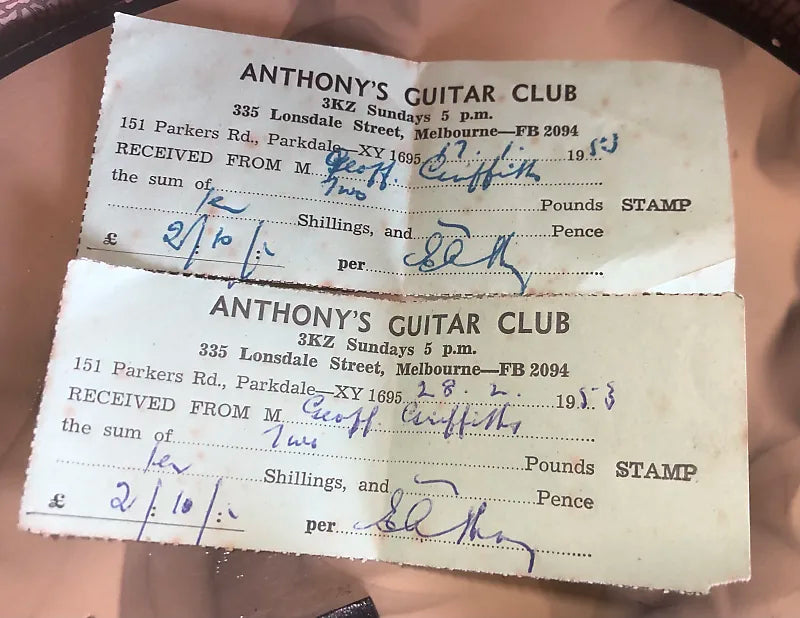 ANTHONY'S GUITAR CLUB
3KZ Sundays 5 p.m.
335 Lonsdale Street, Melbourne—FB 2094
151 Parkers Rd., Parkdale—XY 1695 17. 1. 1953
RECEIVED FROM M Geoff. Griffiths
the sum of Two Pounds STAMP
Ten Shillings, and — Pence
£ 2/:10/:- per
ANTHONY'S GUITAR CLUB
3KZ Sundays 5 p.m.
335 Lonsdale Street, Melbourne—FB 2094
151 Parkers Rd., Parkdale—XY 1695 28. 2. 1953
RECEIVED FROM M Geoff. Griffiths
the sum of Two Pounds STAMP
Ten Shillings, and — Pence
£ 2/:10/:- per